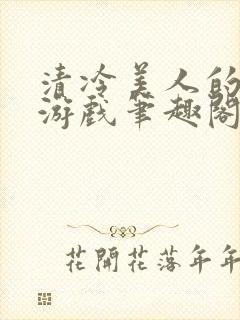 清冷美人的
游戏笔趣阁
花開花落年年